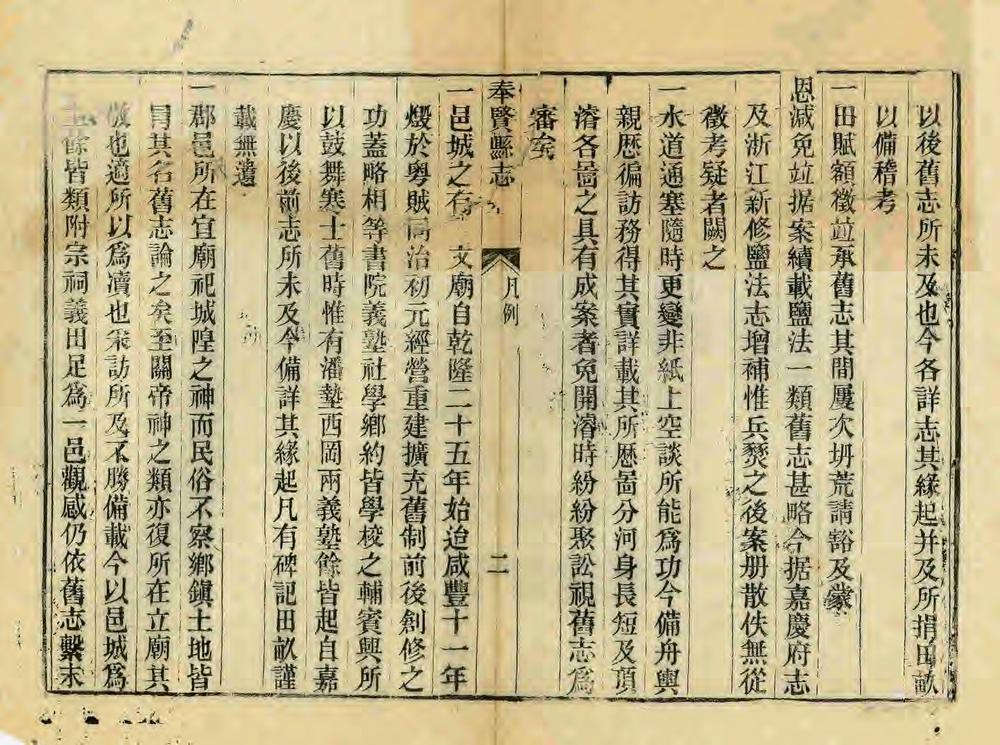 以後舊志所未及也今各詳志其緣起并及所捐田畝
以備稽考
一田賦額徵並承舊志其間屢次坍荒請豁及蒙
恩減免並据案續載鹽法一類舊志甚略今据嘉慶府志
及浙江新修鹽法志增補惟兵燹之後案册散佚無從
徵考疑者闕之
一水道通塞隨時更變非紙上空談所能爲功今備舟輿
親歷徧訪務得其實詳載其所歷啚分河身長短及項
濬各啚之具有成案者免開濬時紛紛聚訟視舊志爲
審矣
奉賢縣志 凡例 二
一邑城之有 文廟自乾隆二十五年始迨咸豐十一年
燬於粵賊同治初元經營重建擴充舊制前後創修之
功蓋略相等書院義塾社學鄉約皆學校之輔賓興所
以鼓舞寒士舊時惟有潘墊西岡兩義塾餘皆起自嘉
慶以後前志所未及今備詳其緣起凡有碑記田畝謹
載無遺
一郡邑所在宜廟祀城隍之神而民俗不察鄉鎮土地皆
冐其名舊志論之矣至關帝神之類亦復所在立廟其
敬也適所以爲瀆也采訪所及不勝備載今以邑城爲
主餘皆類附宗祠義田足爲一邑觀感仍依舊志繫末